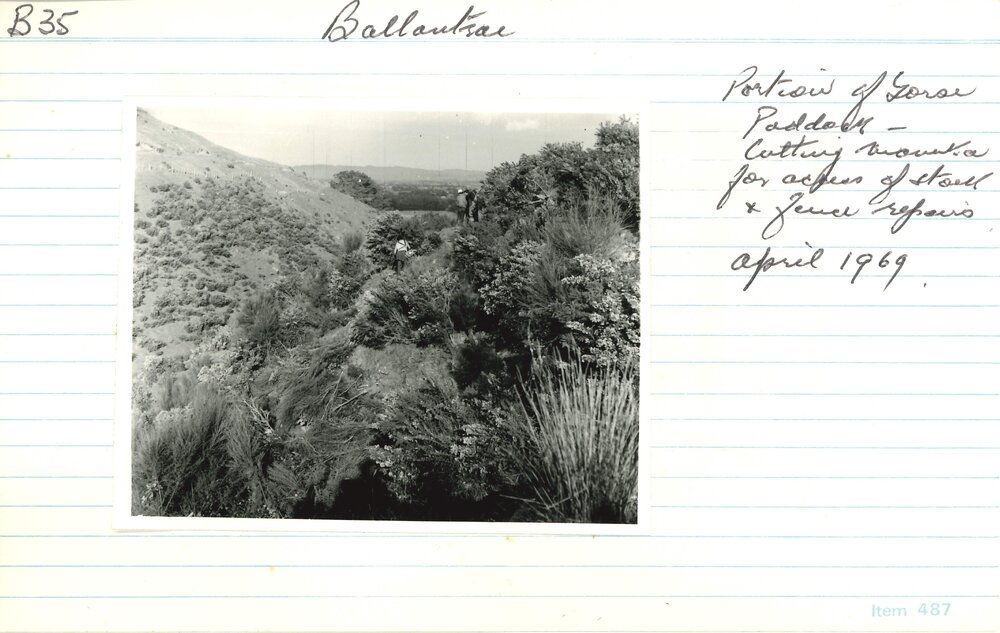 B35
Ballantrae
Portion of Gorse
Paddock –
Cutting manuka
for access of stock
& fence repairs
April 1969.
Item 487